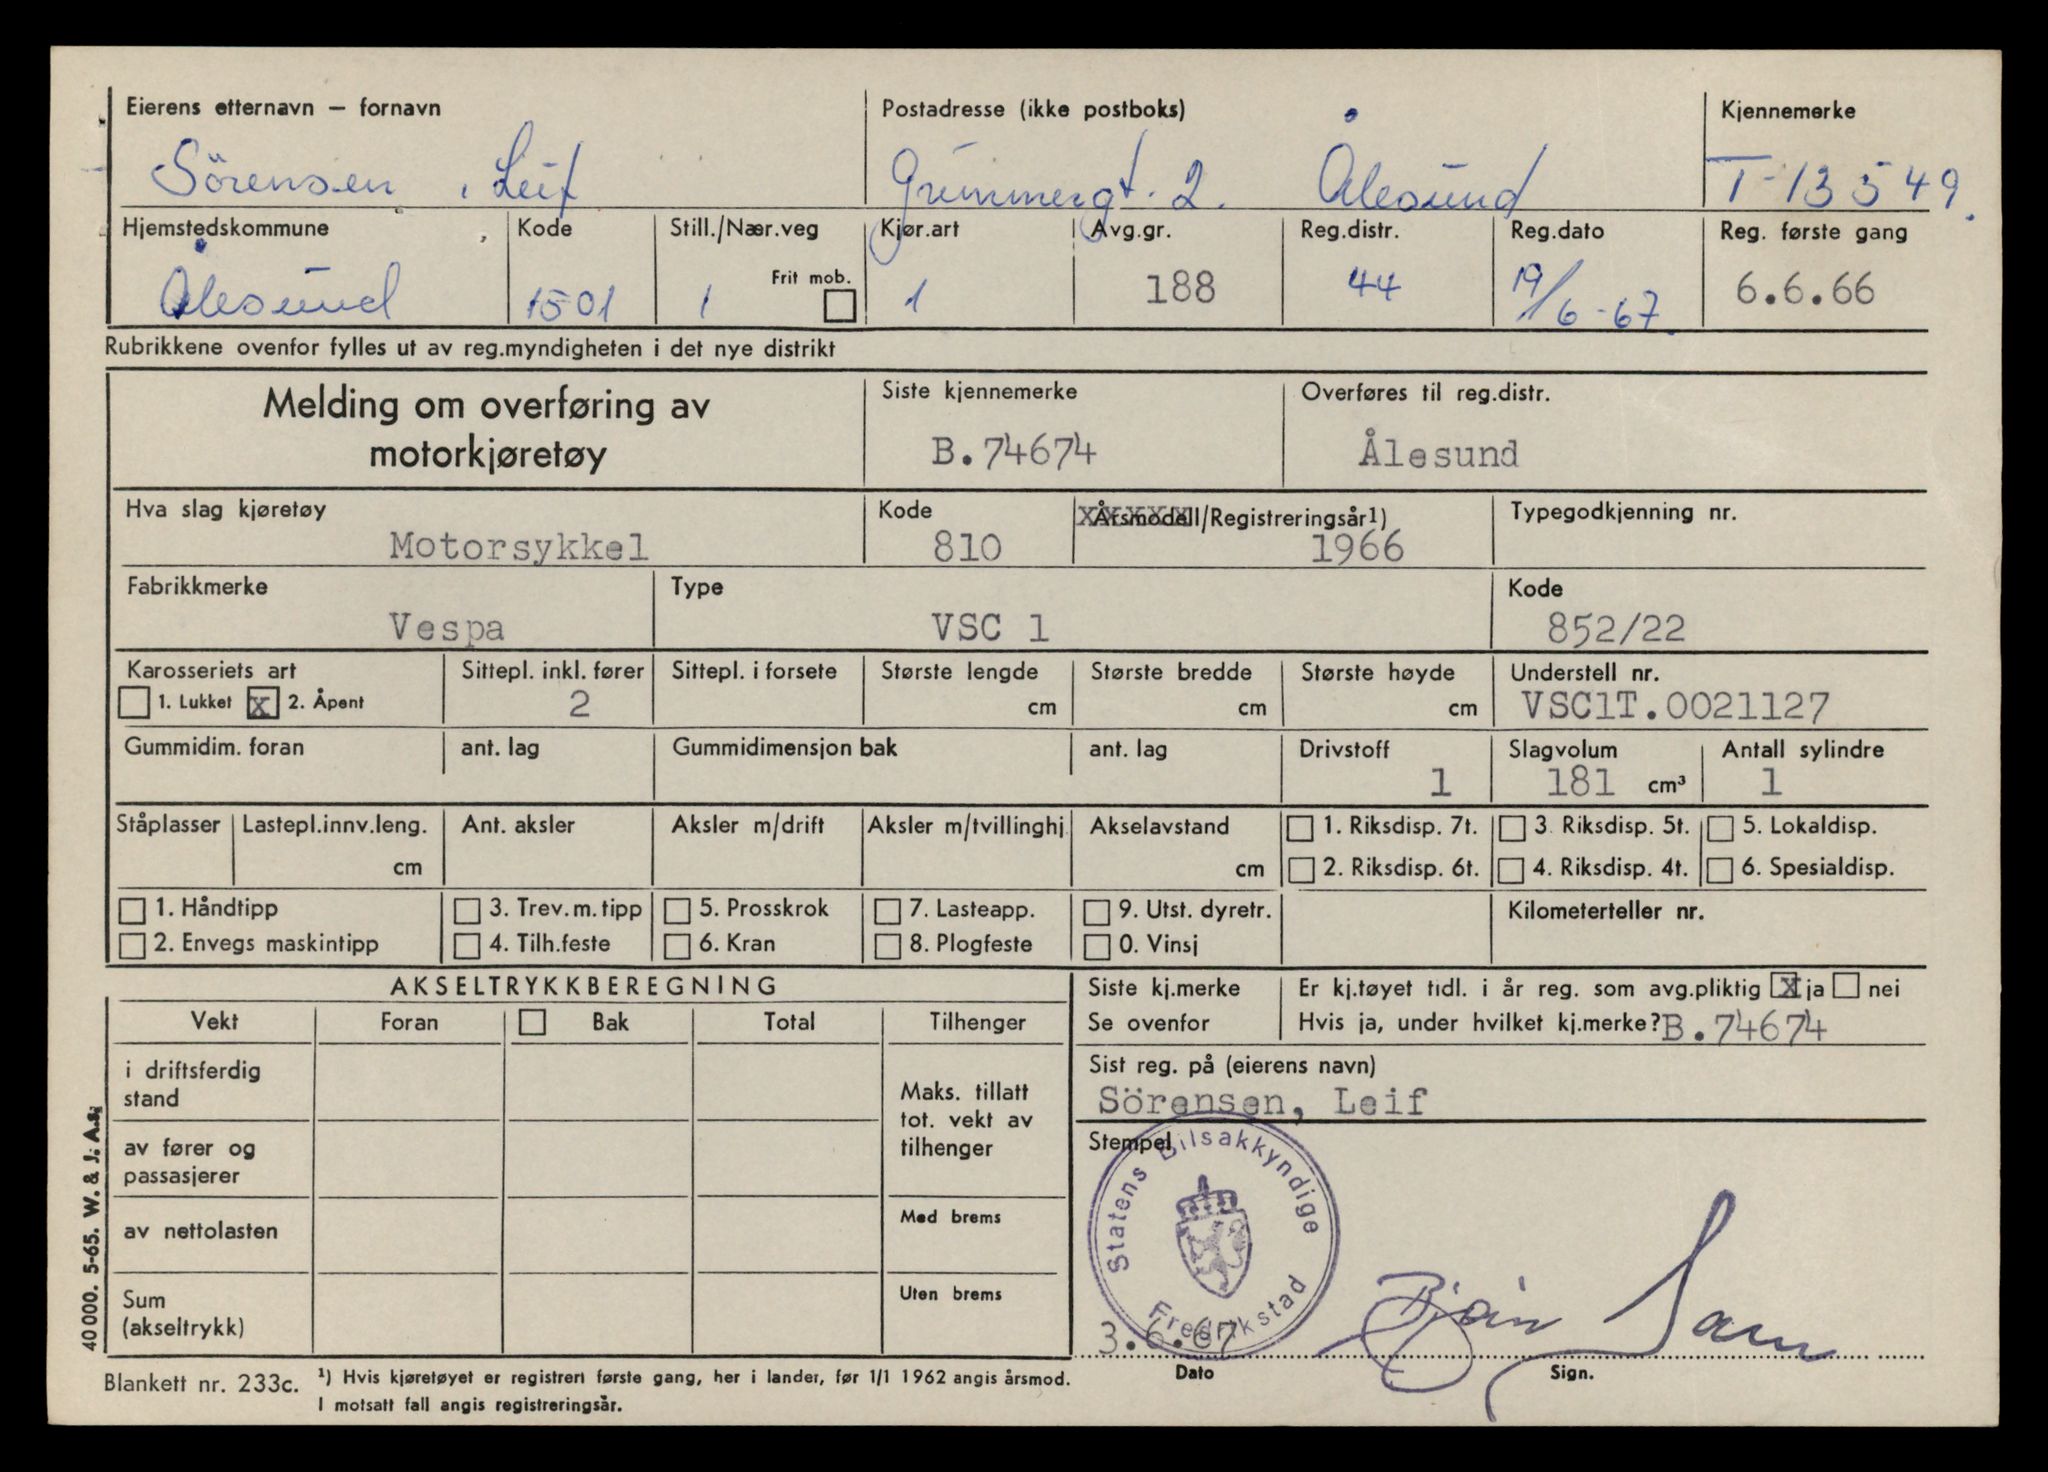 Eierens etternavn — fornavn Postadresse (ikke postboks) Kjennemerke
Sörensen, Leif Grimmergt. 2. Ålesund T-13549.
Hjemstedskommune Kode Still./Nær.veg Kjør.art Avg.gr. Reg.distr. Reg.dato Reg. første gang
Ålesund 1501 1 Frit mob. 1 188 44 19/6-67. 6.6.66
Rubrikkene ovenfor fylles ut av reg.myndigheten i det nye distrikt
Melding om overføring av motorkjøretøy
Siste kjennemerke Overføres til reg.distr.
B.74674 Ålesund
Hva slag kjøretøy Kode Årsmodell/Registreringsår1) Typegodkjenning nr.
Motorsykkel 810 1966
Fabrikkmerke Type Kode
Vespa VSC 1 852/22
Karosseriets art Sittepl. inkl. fører Sittepl. i forsete Største lengde Største bredde Største høyde Understell nr.
1. Lukket x 2. Åpent 2 cm cm cm VSC1T.0021127
Gummidim. foran ant. lag Gummidimensjon bak ant. lag Drivstoff Slagvolum Antall sylindre
1 181 cm³ 1
Ståplasser Lastepl.innv.leng. Ant. aksler Aksler m/drift Aksler m/tvillinghj Akselavstand 1. Riksdisp. 7t. 3. Riksdisp. 5t. 5. Lokaldisp.
cm cm 2. Riksdisp. 6t. 4. Riksdisp. 4t. 6. Spesialdisp.
1. Håndtipp 3. Trev.m.tipp 5. Prosskrok 7. Lasteapp. 9. Utst. dyretr. Kilometerteller nr.
2. Envegs maskintipp 4. Tilh.feste 6. Kran 8. Plogfeste 0. Vinsj
AKSELTRYKKBEREGNING
Vekt Foran Bak Total Tilhenger
i driftsferdig stand
Maks. tillatt tot. vekt av tilhenger
av fører og passasjerer
av nettolasten Med brems
Sum (akseltrykk) Uten brems
Siste kj.merke Er kj.tøyet tidl. i år reg. som avg.pliktig x ja nei
Se ovenfor Hvis ja, under hvilket kj.merke? B.74674
Sist reg. på (eierens navn)
Sörensen, Leif
Stempel
Statens Bilsakkyndige
Fredrikstad
3.6.67
Dato Sign.
40 000. 5-65. W. & J. A.s.
Blankett nr. 233c. ¹) Hvis kjøretøyet er registrert første gang, her i lander, før 1/1 1962 angis årsmod.
I motsatt fall angis registreringsår.